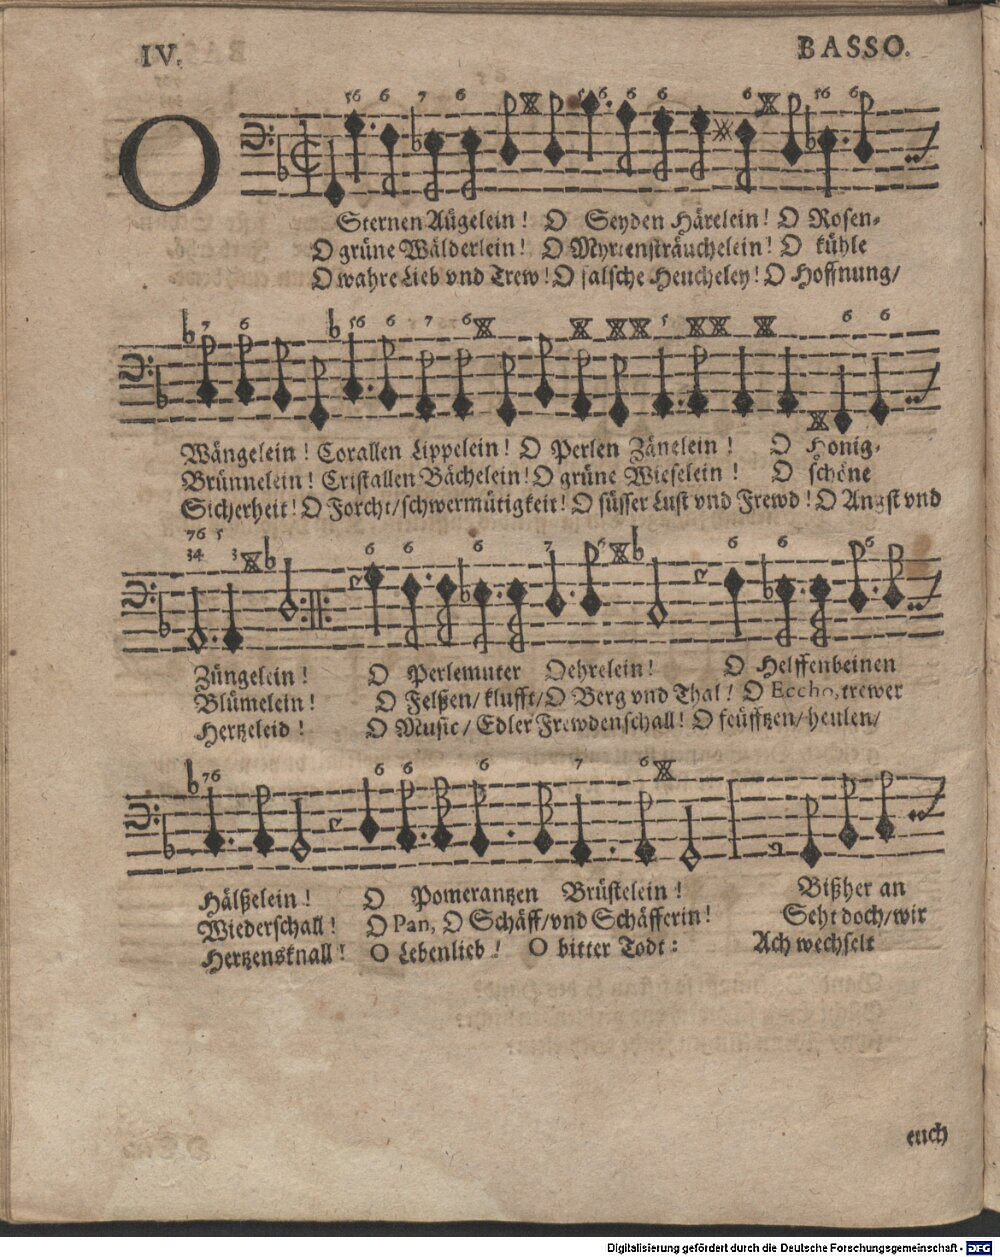 IV.
BASSO.
O Sternen Aügelein! O Seyden Härelein! O Rosen-
O grüne Wälderlein! O Myrtensträuchelein! O kühle
O wahre Lieb vnd Trew! O falsche Heucheley! O Hoffnung/
Wängelein! Corallen Lippelein! O Perlen Zänelein! O Honig-
Brünnelein! Cristallen Bächelein! O grüne Wieselein! O schöne
Sicherheit! O Forcht/schwermütigkeit! O süsser Lust vnd Frewd! O Angst vnd
Züngelein! O Perlemuter Oehrelein! O Helffenbeinen
Blümelein! O Felßen/klufft/O Berg vnd Thal! O Eccho, trewer
Hertzeleid! O Music/ Edler Frewdenschall! O seüfftzen/heulen/
Hälßelein! O Pomerantzen Brüstelein! Bißher an
Wiederschall! O Pan, O Schäff/vnd Schäfferin! Seht doch/wir
Hertzensknall! O Lebenlieb! O bitter Todt: Ach wechselt
euch
Digitalisierung gefördert durch die Deutsche Forschungsgemeinschaft - DFG